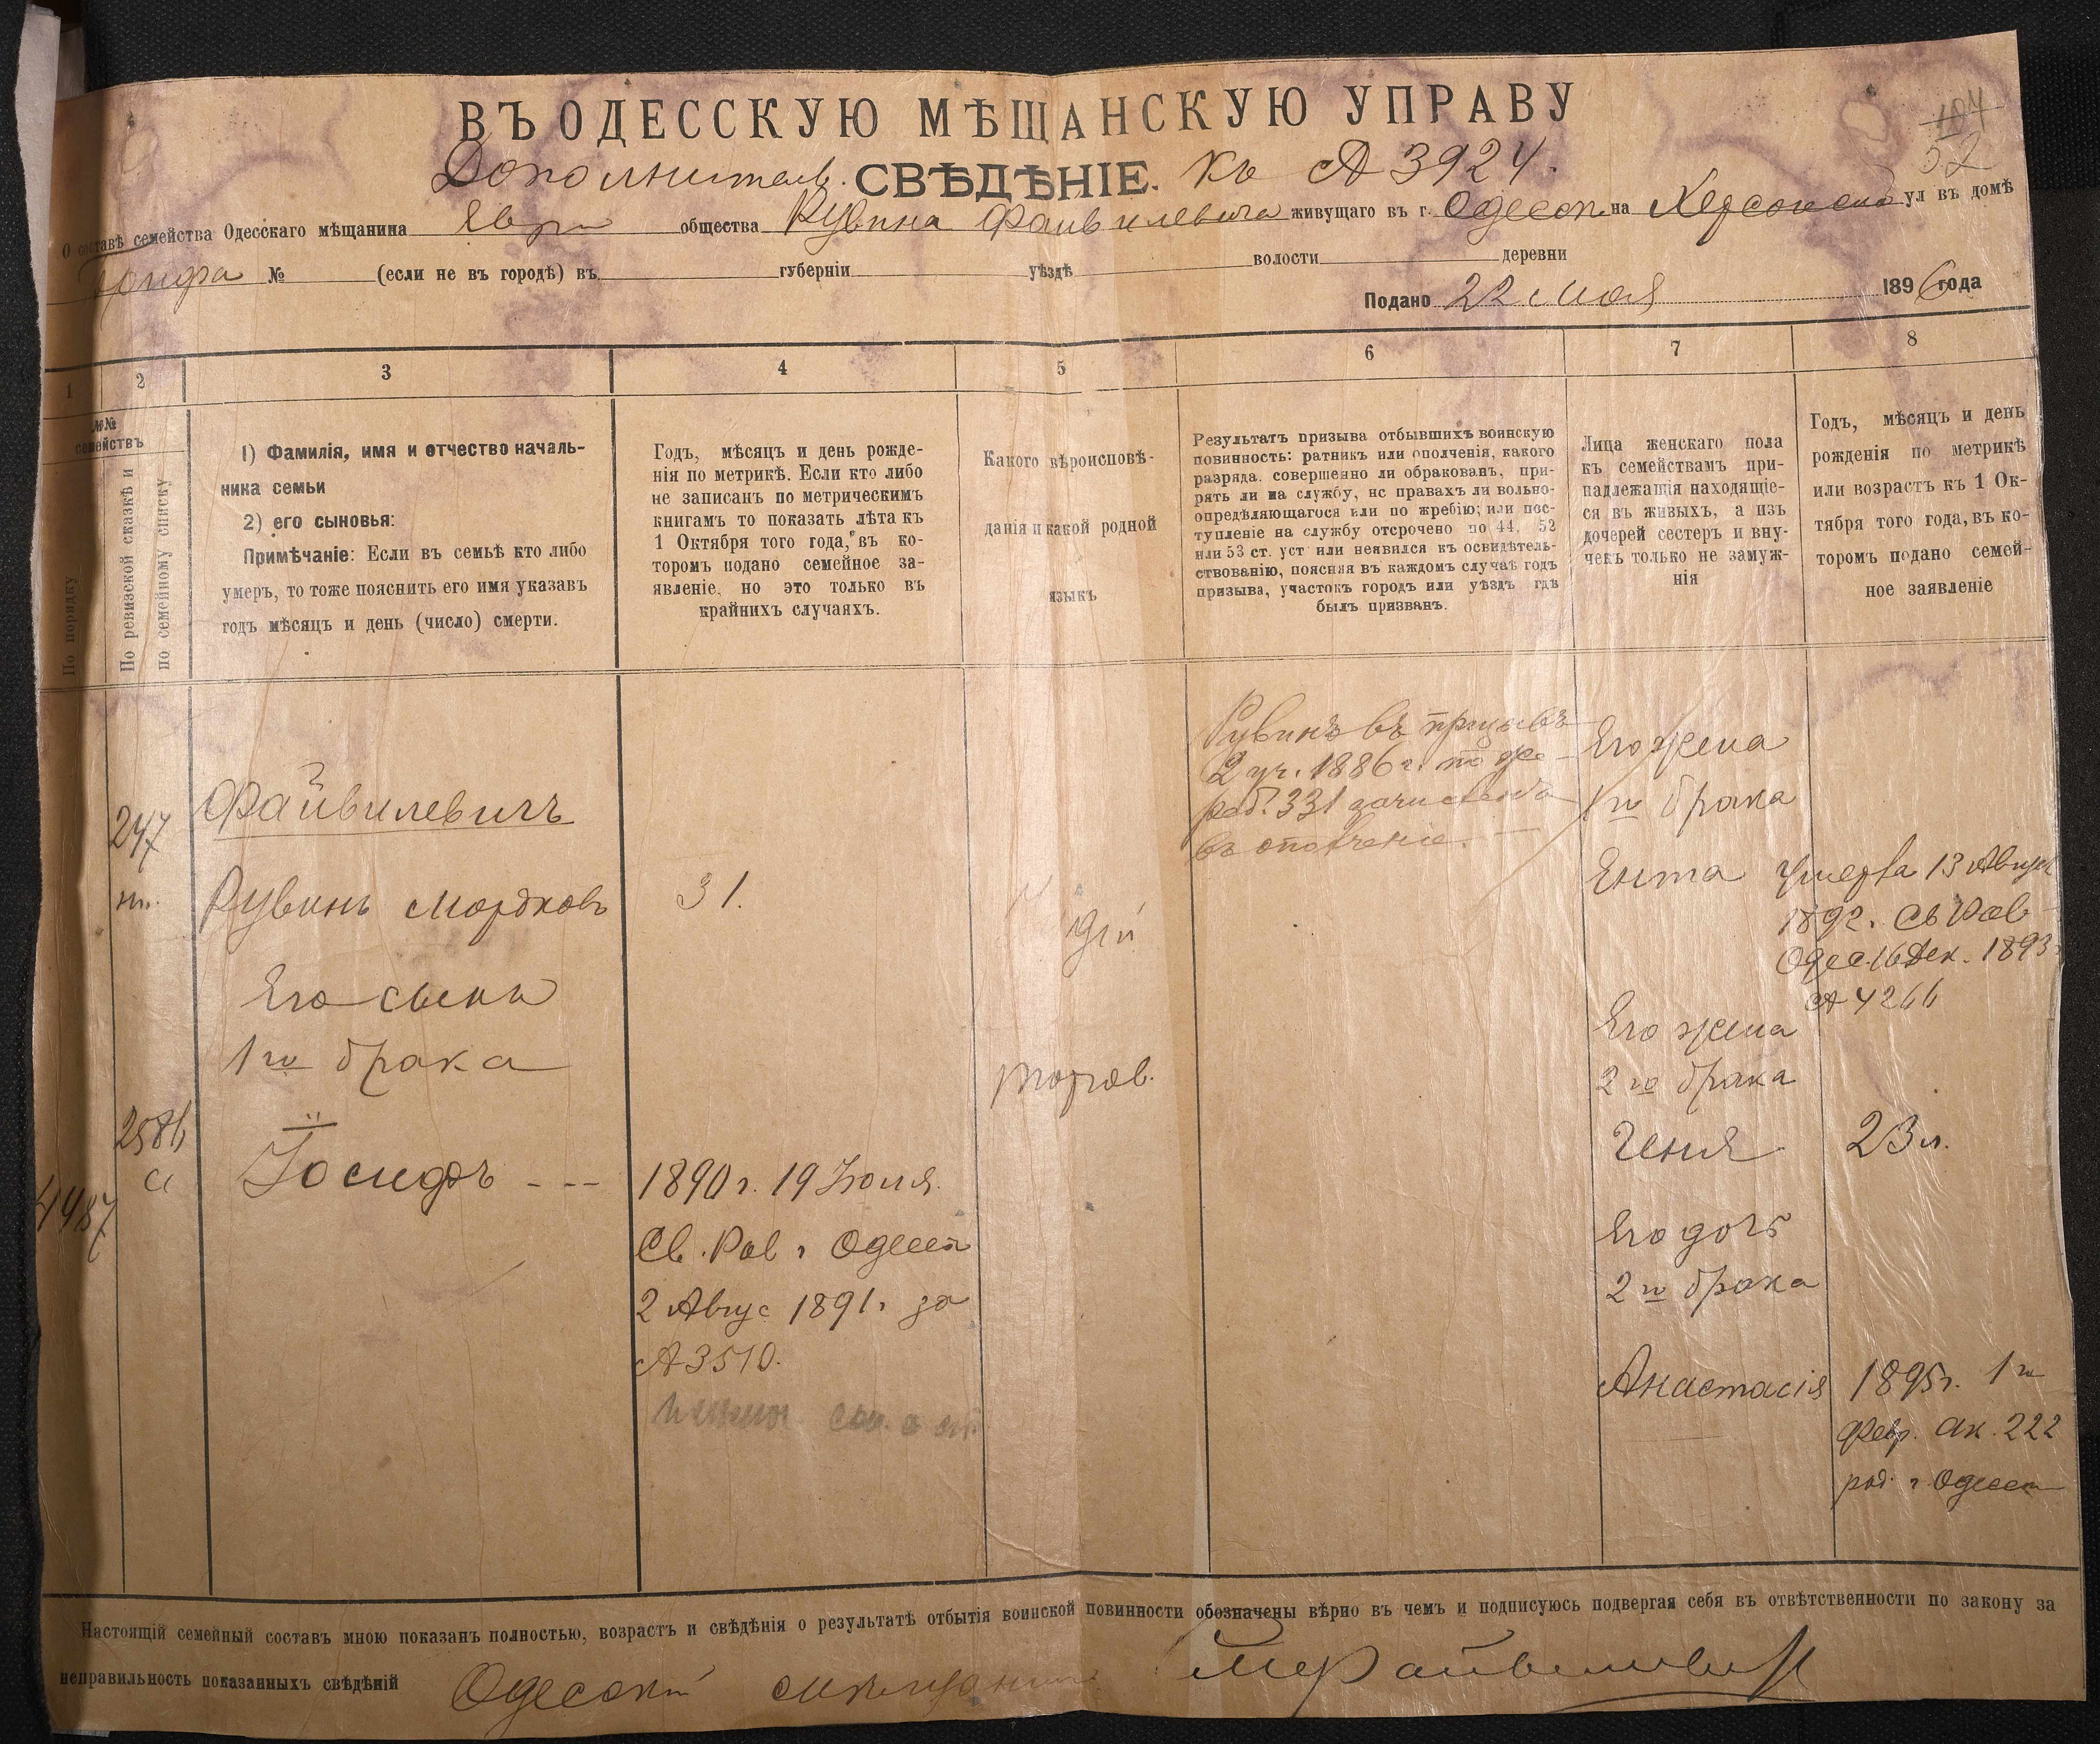 ВЪ ОДЕССКУЮ МѢЩАНСКУЮ УПРАВУ
104
52
Дополнительн. СВѢДѢНІЕ. къ № 3924.
О составѣ семейства Одесскаго мѣщанина Евр общества Рувина Файвилевича живущаго въ г. Одессѣ на Херсонской ул въ домѣ
№ (если не въ городѣ) въ губерніи уѣздѣ волости деревни
Подано 22 Мая 1896 года
1 2 3 4 5 6 7 8
№№ семействъ
По порядку
По ревизской сказкѣ и
по семейному списку
1) Фамилія, имя и отчество началь-
ника семьи
2) его сыновья:
Примѣчаніе: Если въ семьѣ кто либо
умеръ, то тоже пояснить его имя указавъ
годъ мѣсяцъ и день (число) смерти.
Годъ, мѣсяцъ и день рожде-
нія по метрикѣ. Если кто либо
не записанъ по метрическимъ
книгамъ то показать лѣта къ
1 Октября того года, въ ко-
торомъ подано семейное за-
явленіе, но это только въ
крайнихъ случаяхъ.
Какого вѣроисповѣ-
данія и какой родной
языкъ
Результатъ призыва отбывшихъ воинскую
повинность: ратникъ или ополченія, какого
разряда. совершенно ли обракованъ, при-
рятъ ли на службу, нс правахъ ли вольно-
опредѣляющагося или по жребію; или пос-
тупленіе на службу отсрочено по 44, 52
или 53 ст. уст или неявился къ освидѣтель-
ствованію, поясняя въ каждомъ случаѣ годъ
призыва, участокъ городъ или уѣздъ гдѣ
былъ призванъ.
Лица женскаго пола
къ семействамъ при-
надлежащія находящіе-
ся въ живыхъ, а изъ
дочерей сестеръ и вну-
чекъ только не замуж-
нія
Годъ, мѣсяцъ и день
рожденія по метрикѣ
или возрастъ къ 1 Ок-
тября того года, въ ко-
торомъ подано семей-
ное заявленіе
247
Файвилевичъ
Рувинъ Мордковъ
31.
Его сынъ
1го брака
2586
4487
Іосифъ
1890 г. 19 Іюля.
Св. Рав г Одессы
2 Авгус 1891 г за
№ 3510.
Рувинъ въ призывъ
2 уч. 1886 г. по же-
реб. 331 зачисленъ
въ ополченіе.
Его жена
1го брака
Ента умерла 13 Август
1892. Св Рав
Одес. 16 Дек. 1893
№ 4266
Его жена
2го брака
Геня 23 л.
Его дочь
2го брака
Анастасія 1895 г. 1го
Февр. ак. 222
рав. г Одессы
Настоящій семейный составъ мною показанъ полностью, возрастъ и свѣдѣнія о результатѣ отбытія воинской повинности обозначены вѣрно въ чемъ и подписуюсь подвергая себя въ отвѣтственности по закону за
неправильность показанныхъ свѣдѣній Одесскій мѣщанинъ